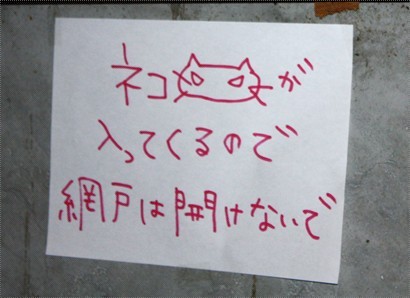 ネコが
入ってくるので
網戸は開けないで